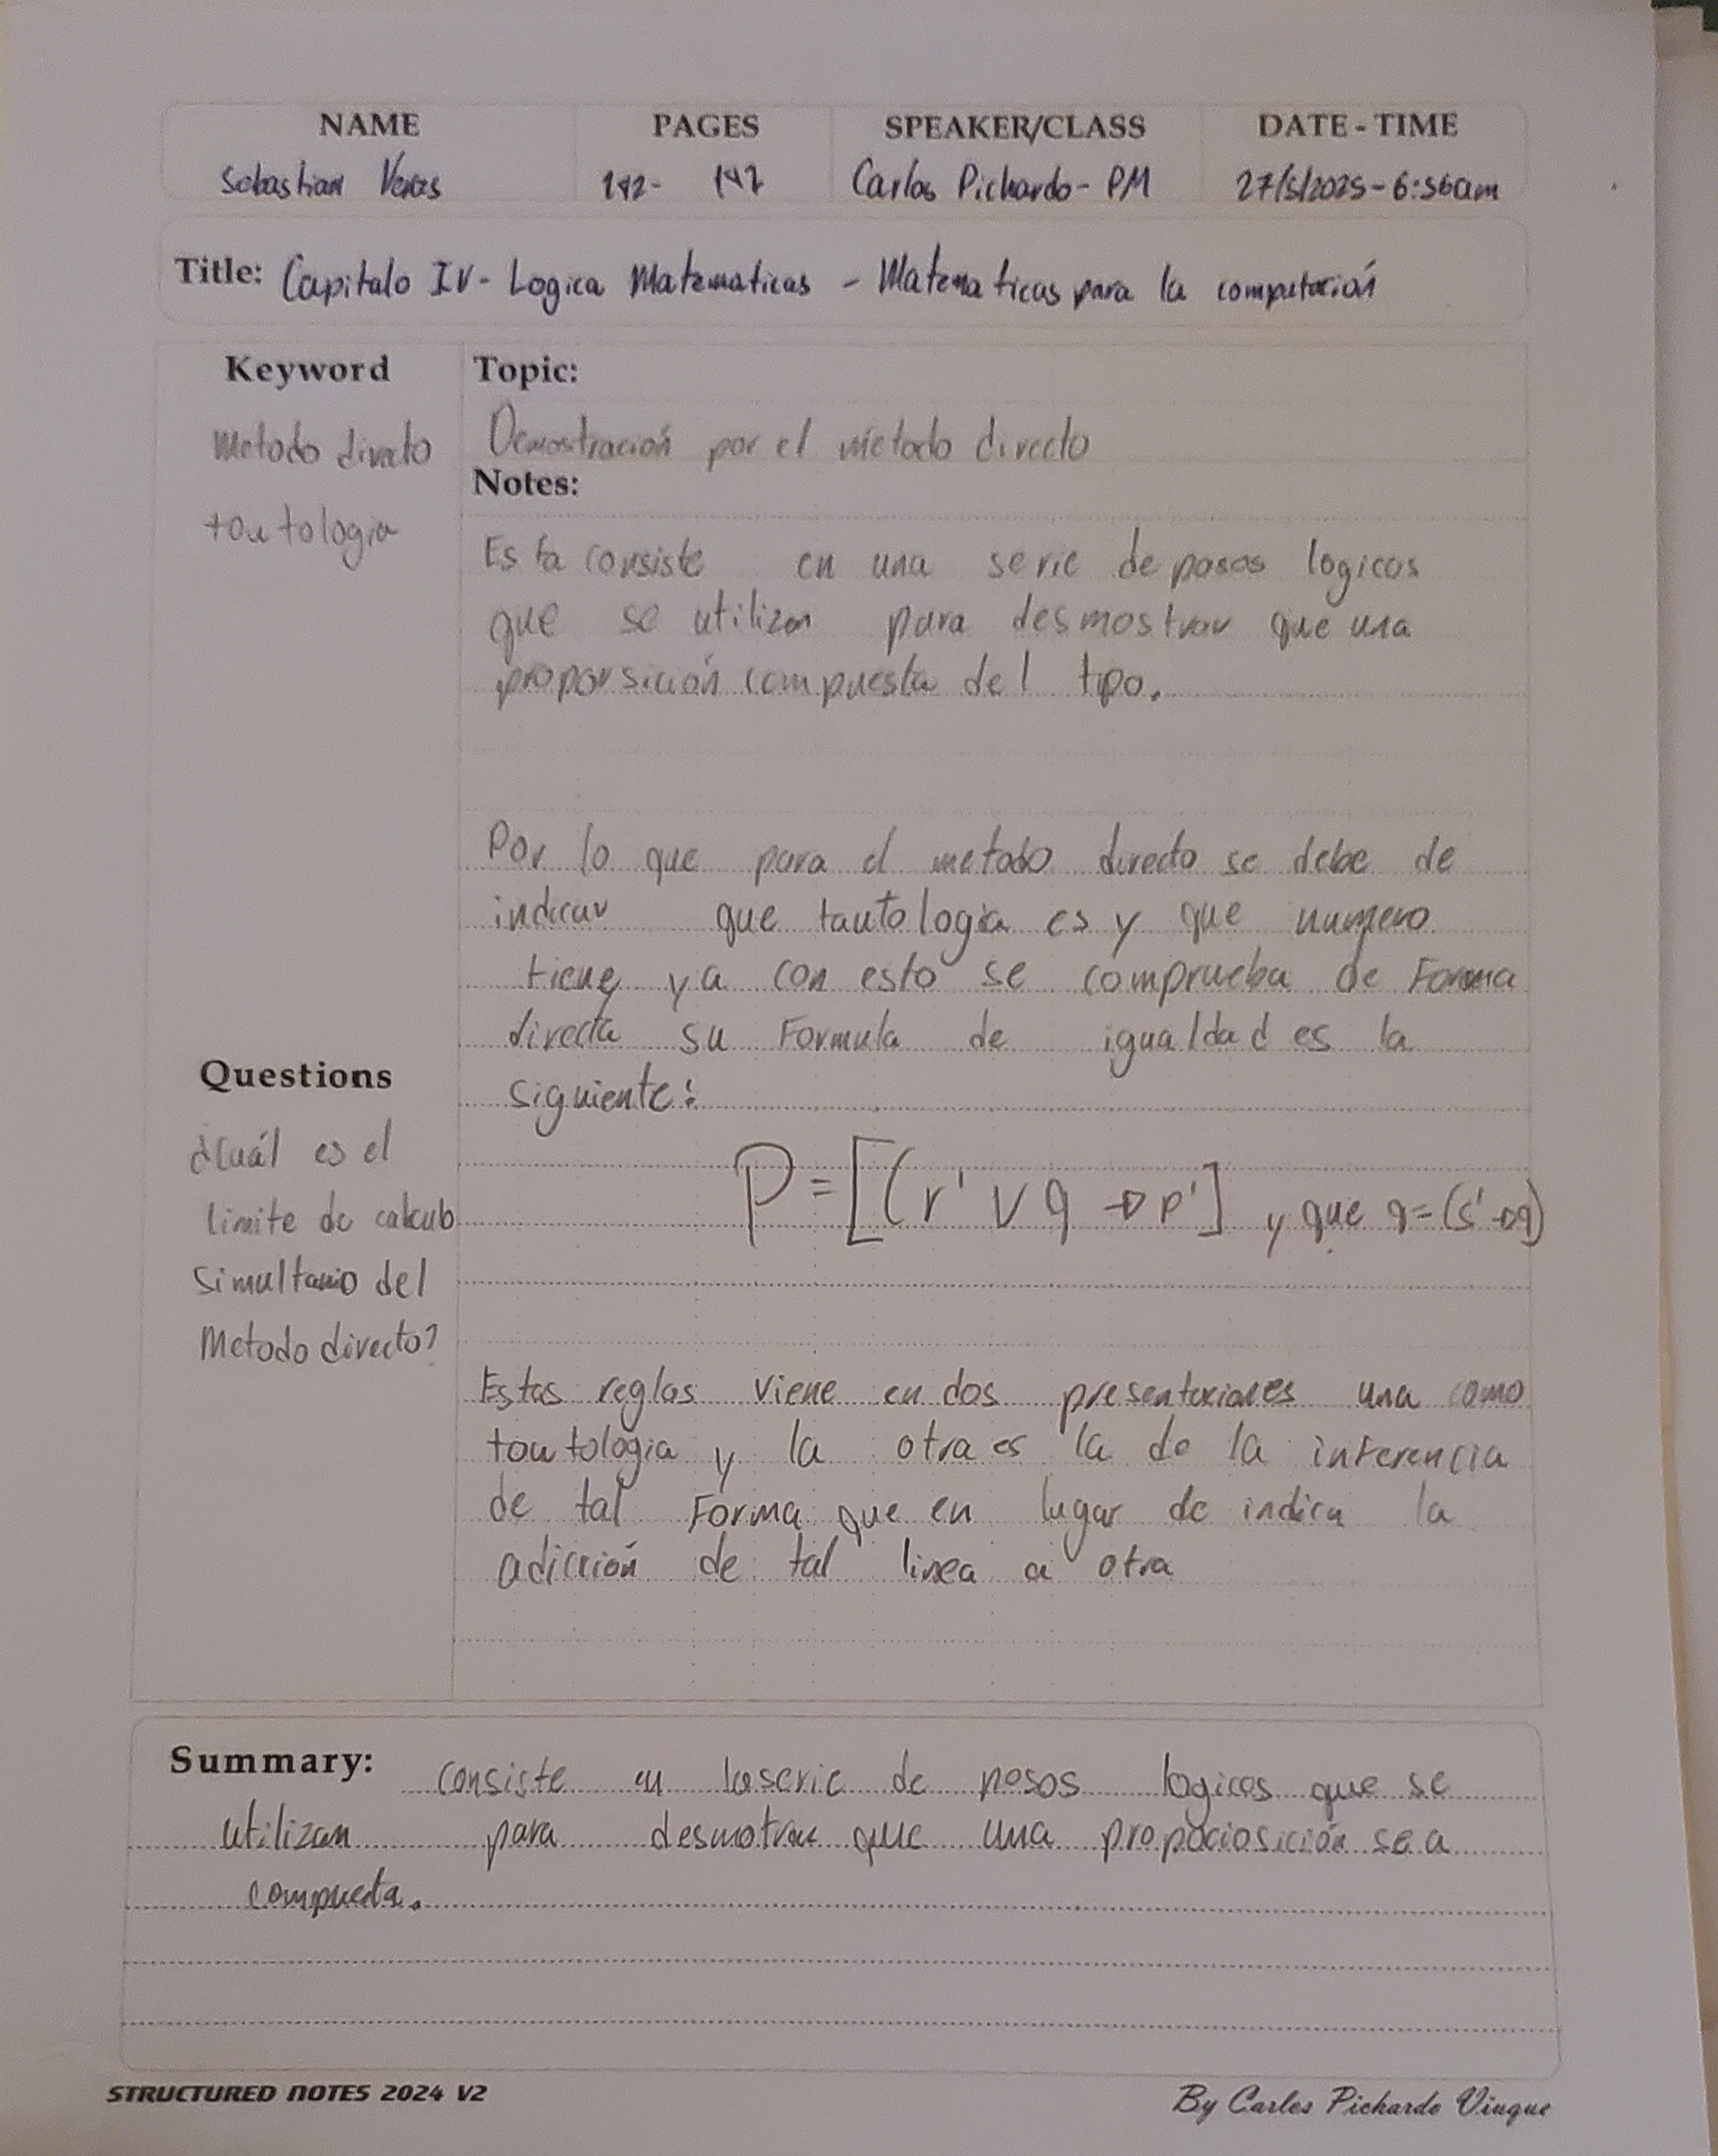 NAME PAGES SPEAKER/CLASS DATE - TIME
Sebastian Veras 142- 147 Carlos Pichardo- PM 27/5/2025-6:56am
Title: Capitulo IV- Logica Matematicas - Matematicas para la computación
Keyword
Metodo directo
tautologia
Topic:
Demostración por el método directo
Notes:
Esta consiste en una serie de pasos logicos
que se utilizan para desmostrar que una
proporsición compuesta del tipo.
Por lo que para el metodo directo se debe de
indicar que tautologia es y que numero
tiene ya con esto se comprueba de Forma
directa su Formula de igualdad es la
siguiente:
P=[(r' ∨ q → p'] y que q=(s'→q)
Estas reglas viene en dos presentaciones una como
tautologia y la otra es la de la inferencia
de tal Forma que en lugar de indica la
adicción de tal linea a otra
Questions
¿Cuál es el
limite de calculo
simultanio del
Metodo directo?
Summary: consiste en la serie de pesos logicos que se
utilizan para desmotrar que una propociosición sea
compuesta.
STRUCTURED NOTES 2024 V2 By Carlos Pichardo Viuque